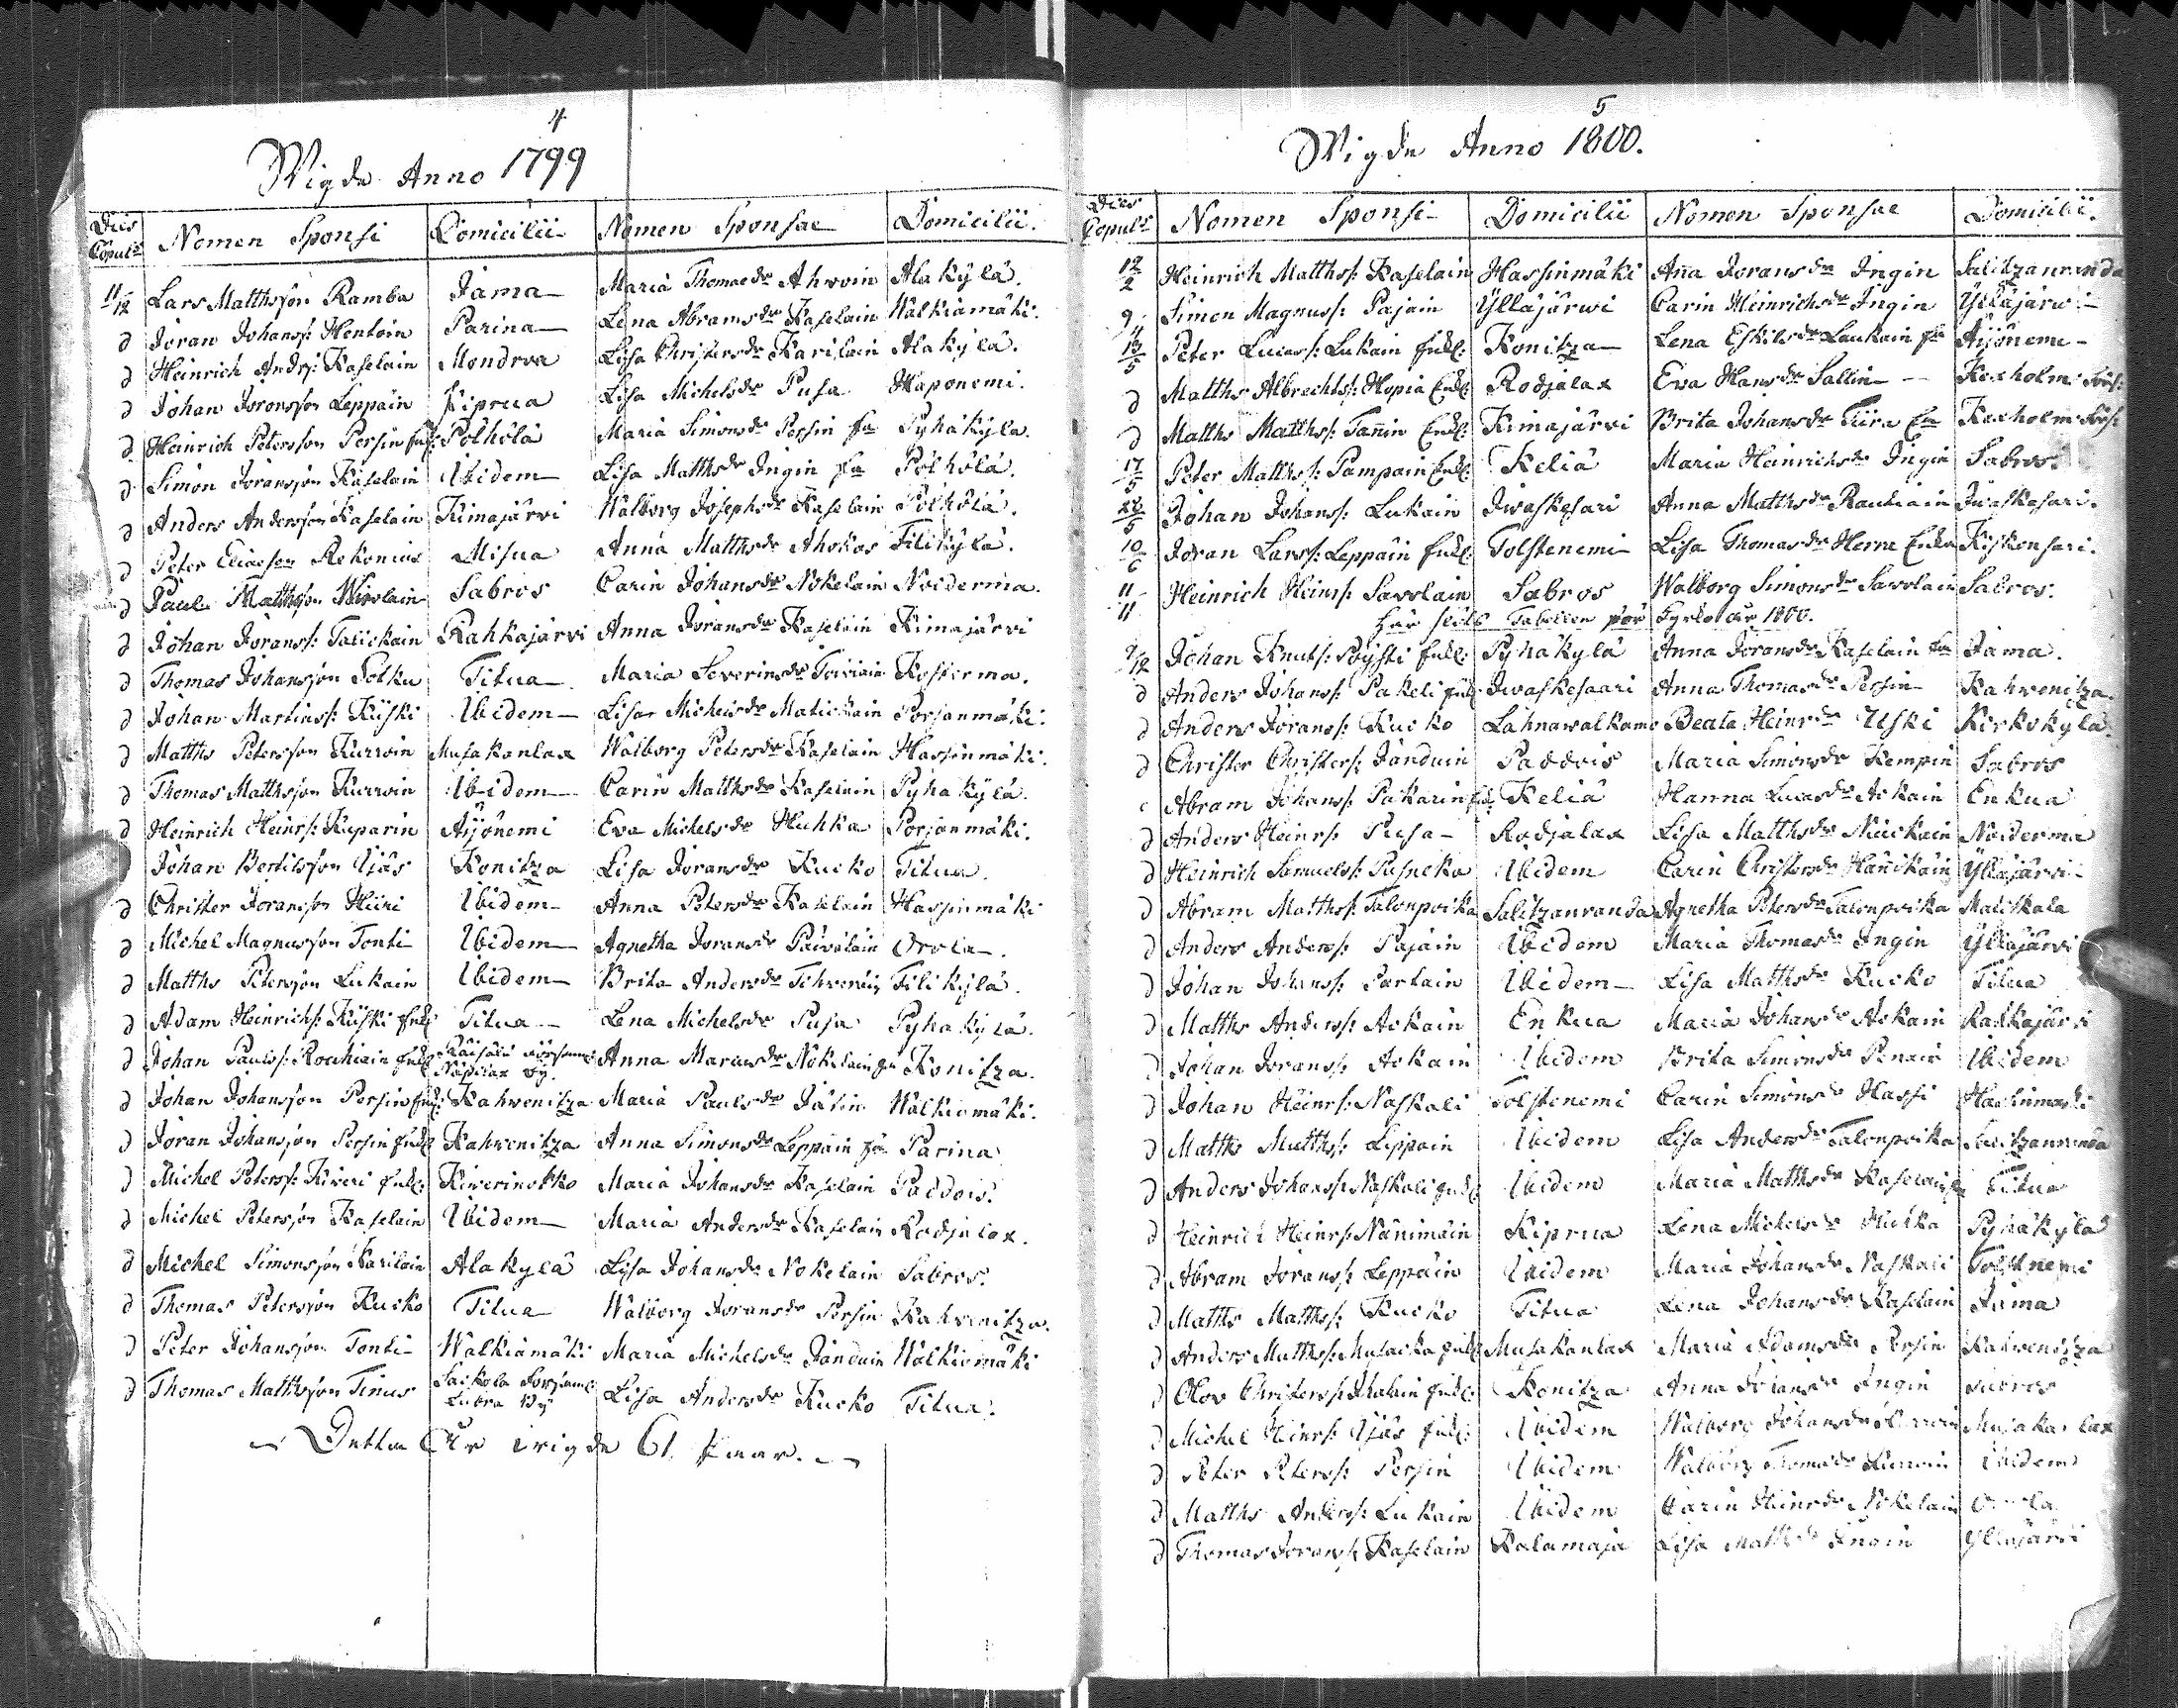 4
Wigde Anno 1799
Dies Copuls Nomen Sponsi Domicilii Nomen Sponsae Domicilii.
11/12 Lars Matthsson Ramba Jama Maria Thomaedr Ahwoin Alakylä.
d Jöran Johanss: Hentoin Parina Lena Abramsdr Kaselain Walkiamäki.
d Heinrich Andrs: Kaselain Mondrva Lisa Christersdr Karilain Alakylä.
d Johan Joransson Leppäin Kiprua Lisa Michelsdr Pusa Haponemi.
d Heinrich Petersson Persin Enkl: Pölhölä Maria Simonsdr Persin Ea Pyhäkylä.
d Simon Joransson Kaselain Ibidem Lisa Matthsdr Ingin Ea Pölhölä.
d Anders Andersson Kaselain Kimajärvi Walborg Josephsdr Kaselain Pölhölä.
d Peter Eliaeson Rekonius Misua Anna Matthsdr Ahokas Tilikylä.
d Paul Matthson Wirolain Sabros Carin Johansdr Nokelain Noiderma.
d Johan Jorans: Talickain Rahkajärvi Anna Joransdr Kaselain Kimajärvi
d Thomas Johansson Polku Titua Maria Severinsdr Kosterma.
d Johan Martins: Kiiski Ibidem Lisa Michelsdr Matickain Porsanmäki.
d Matths Petersson Kurvoin Musakanlax Walborg Petersdr Kaselain Hassinmäki.
d Thomas Matthsson Kurvoin Ibidem Carin Matthsdr Kaselain Pyhäkylä.
d Heinrich Heinrs: Kuparin Äyönemi Eva Michelsdr Huhka Porsanmäki.
Johan Bertilsson Ijäs Konitza Lisa Joransdr Kucko Titua.
d Christer Joransson Hiiri Ibidem Anna Petersdr Kaselain Hassinmäki
d Michel Magnusson Tonti Ibidem Agnetha Joransdr Päivöläin Orola.
d Matths Petersson Lukain Ibidem Brita Andersdr Tihvenein Tilikylä.
d Adam Heinrichs: Kiiski Enkl Titua Lena Michelsdr Pusa Pyhäkylä.
d Johan Pauls: Rouhiain Enkl Räisälä församl: Näpilax by. Anna Marcusdr Nokelain Ea Konitza.
d Johan Johansson Persin Enkl: Kahvenitza Maria Paulsdr Jäsin Walkiamäki.
d Jöran Johansson Persin Enkl Kahvenitza Anna Simonsdr Leppäin Ea Parina
d Michel Peters: Kiveri Enkl: Kiverinokko Maria Johansdr Kaselain Paddois.
d Michel Petersson Kaselain Ibidem Maria Andersdr Kaselain Rodjalax.
d Michel Simonsson Karilain Alakylä Lisa Johansdr Nokelain Sabros.
d Thomas Petersson Kucko Titua Walborg Joransdr Persin Kahvenitza.
d Peter Johansson Tonti Walkiamäki Maria Michelsdr Jänduin Walkiamäki
d Thomas Matthsson Tinus Sackola Församl: Lubra By Lisa Andersdr Kucko Titua.
Detta År wigde 61 paar.
5
Wigde Anno 1800.
Dies Copuls Nomen Sponsi Domicilii Nomen Sponsae Domicilii.
12/2 Heinrich Matths: Kaselain Hassinmäki Anna Joransdr Ingin Salitzanranda
9 Simon Magnus: Pajain Ylläjärwi Carin Heinrichsdr Ingin Ylläjärwi
4 13/5 Peter Lucas: Lukain Enkl: Konitza Lena Eskilsdr Laukain Ea Äyönemi
d Matths Albrechts: Hopia Enkl: Rodjalax Eva Hansdr Sallin Kexholm Förs:
d Matths Matths: Tannin Enkl: Kimajärvi Brita Johansdr Tiira Ea Kexholm Förs:
17/5 Peter Matths: Pampain Enkl: Keliä Maria Heinrichsdr Ingin Sabros
28/5 Johan Johans: Lukain Iwaskesari Anna Matthsdr Rauhiain Iwaskesari.
10/6 Jöran Lars: Leppäin Enkl: Tolstenemi Lisa Thomasdr Herne Enka Kiskonsari.
11 Heinrich Heinrs: Savolain Sabros Walborg Simonsdr Savolain Sabros.
11 Här slöts Tabellen för Kyrko år 1800.
9/12 Johan Knuts: Pöysti Enkl: Pyhäkylä Anna Joransdr Kaselain Ea Jama.
d Anders Johans: Pakeli Enkl Iwaskesaari Anna Thomasdr Persin Kahvenitza.
d Anders Jorans: Kucko Lahnawalkama Beata Heinrsdr Uski Kirkokylä.
d Christer Christers: Jänduin Paddois Maria Simonsdr Kempin Sabros
Abram Johans: Pakarin Enkl Keliä Hanna Lucasdr Ackain Enkua
d Anders Heinrs: Pusa Rodjalax Lisa Matthsdr Noiderma
d Heinrich Samuels: Pusneka Ibidem Carin Christersdr Hannikain Ylläjärvi
d Abram Matths: Talonpoika Salitzanranda Agnetha Petersdr Talonpoika Matiskala
d Anders Anders: Pajäin Ibidem Maria Thomasdr Ingin Ylläjärvi
d Johan Johans: Partain Ibidem Lisa Matthsdr Kucko Titua
d Matths Anders: Ackain Enkua Maria Johansdr Ackain Rahkajärvi
d Johan Jorans: Ackain Ibidem Brita Simonsdr Ibidem
d Johan Heinrs: Naskali Tolstenemi Carin Simonsdr Hassi Hassinmäki
d Matths Matths: Leppäin Ibidem Lisa Andersdr Talonpoika Salitzanranda
d Anders Johans: Naskali Enkl: Ibidem Maria Matthsdr Kaselain Titua
d Heinrich Heinrs: Nänimäin Kiprua Lena Michelsdr Huhka Pyhäkylä
d Abram Jorans: Leppäin Ibidem Maria Johansdr Naskali Tolstenemi
d Matths Matths: Kucko Titua Lena Johansdr Kaselain Jama
d Anders Matths: Musacka Enkl Musakanlax Maria Adamsdr Persin Kahvenitza
d Olov Christers: Ihalain Enkl: Konitza Anna Johansdr Ingin Sabros
d Michel Heinrs: Ijäs Enkl: Ibidem Walborg Johansdr Kurvoin Musakanlax
d Peter Peters: Persin Ibidem Walborg Thomasdr Kurvoin Ibidem
d Matths Anders: Lukain Ibidem Carin Heinrsdr Nokelain
d Thomas Jorans: Kaselain Kalamaja Lisa Matthsdr Ingin Ylläjärvi